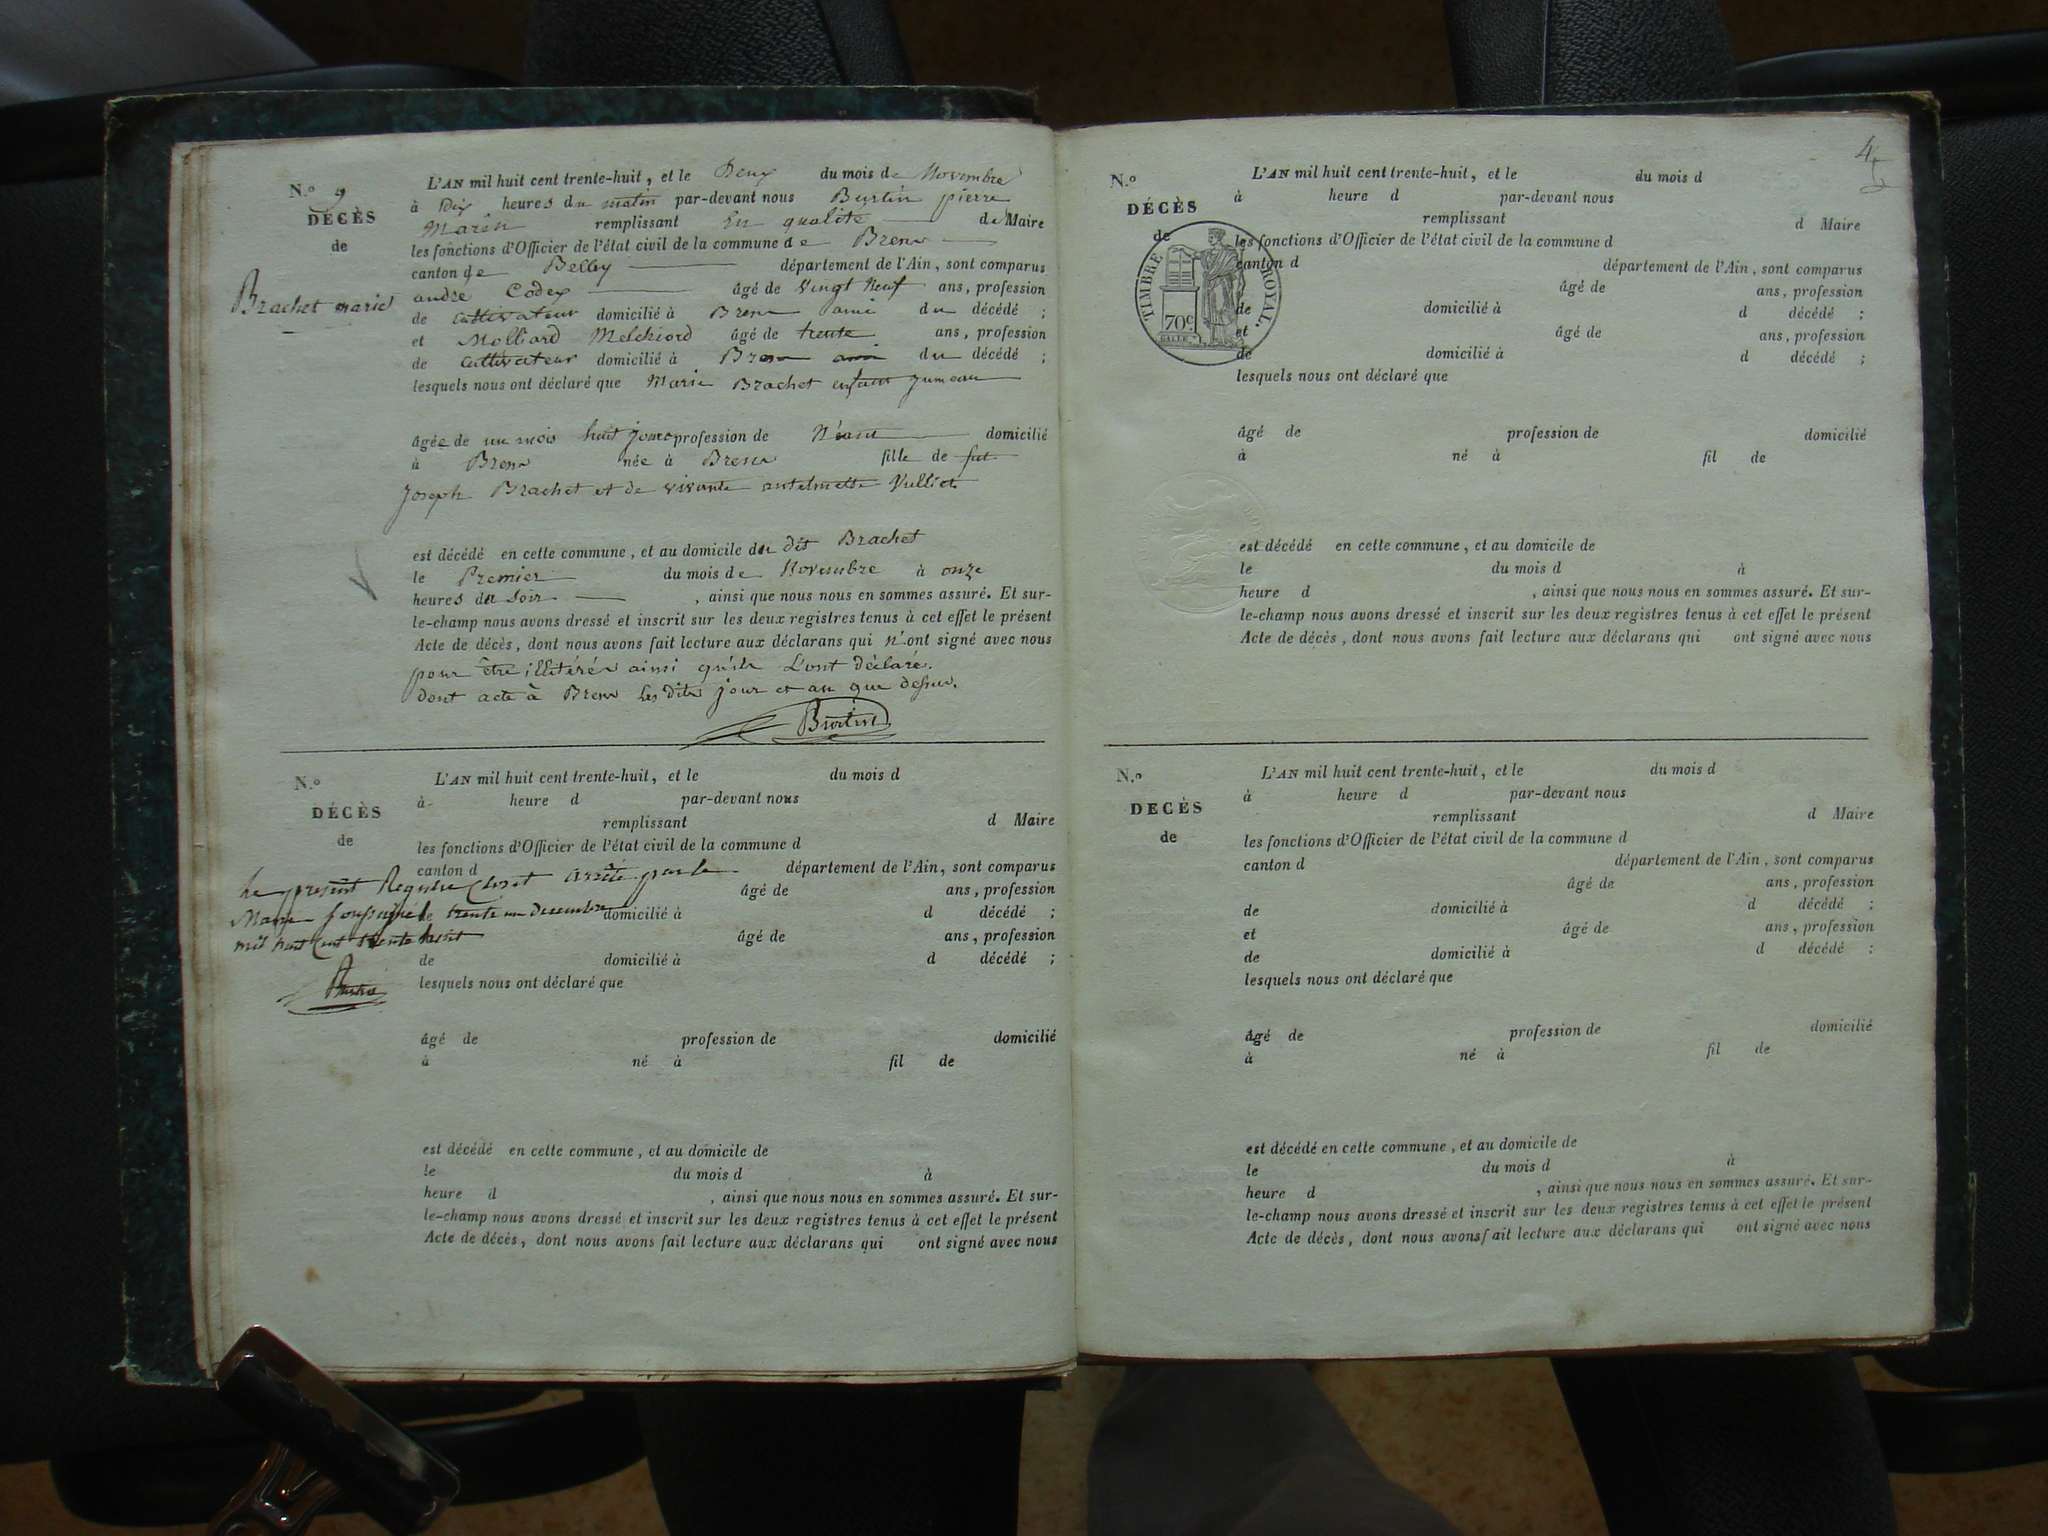 N.º 9
DÉCÈS
de
Brachet marie
L'AN mil huit cent trente-huit, et le Deux du mois de Novembre
à Dix heures du matin par-devant nous Burtin pierre
Marin remplissant En qualité de Maire
les fonctions d'Officier de l'état civil de la commune de Brens
canton de Belley département de l'Ain, sont comparus
andré Codex âgé de vingt neuf ans, profession
de cultivateur domicilié à Brens ami du décédé ;
et Molliard Melchiord âgé de trente ans, profession
de cultivateur domicilié à Brens ami du décédé ;
lesquels nous ont déclaré que Marie Brachet enfant jumeau
âgée de un mois huit jours profession de Néant domicilié
à Brens née à Brens fille de fut
Joseph Brachet et de vivante antelmette Vulliet
est décédé en cette commune, et au domicile du dit Brachet
le Premier du mois de Novembre à onze
heures du soir , ainsi que nous nous en sommes assuré. Et sur-
le-champ nous avons dressé et inscrit sur les deux registres tenus à cet effet le présent
Acte de décès, dont nous avons fait lecture aux déclarans qui n'ont signé avec nous
pour être illitérés ainsi qu'ils L'ont déclaré.
dont acte à Brens les dits jour et an que dessus.
Burtin
N.º
DÉCÈS
de
L'AN mil huit cent trente-huit, et le du mois d
à heure d par-devant nous
remplissant d Maire
les fonctions d'Officier de l'état civil de la commune d
canton d département de l'Ain, sont comparus
âgé de ans, profession
de domicilié à d décédé ;
âgé de ans, profession
de domicilié à d décédé ;
lesquels nous ont déclaré que
âgé de profession de domicilié
à né à fil de
est décédé en cette commune, et au domicile de
le du mois d à
heure d , ainsi que nous nous en sommes assuré. Et sur-
le-champ nous avons dressé et inscrit sur les deux registres tenus à cet effet le présent
Acte de décès, dont nous avons fait lecture aux déclarans qui ont signé avec nous
Le présent Registre Clos et arrêté par le
Maire soussigné le trente un decembre
mil huit cent trente huit
Burtin
4
N.º
DÉCÈS
de
TIMBRE ROYAL.
70c
L'AN mil huit cent trente-huit, et le du mois d
à heure d par-devant nous
remplissant d Maire
les fonctions d'Officier de l'état civil de la commune d
canton d département de l'Ain, sont comparus
âgé de ans, profession
de domicilié à d décédé ;
et âgé de ans, profession
de domicilié à d décédé ;
lesquels nous ont déclaré que
âgé de profession de domicilié
à né à fil de
est décédé en cette commune, et au domicile de
le du mois d à
heure d , ainsi que nous nous en sommes assuré. Et sur-
le-champ nous avons dressé et inscrit sur les deux registres tenus à cet effet le présent
Acte de décès, dont nous avons fait lecture aux déclarans qui ont signé avec nous
N.º
DÉCÈS
de
L'AN mil huit cent trente-huit, et le du mois d
à heure d par-devant nous
remplissant d Maire
les fonctions d'Officier de l'état civil de la commune d
canton d département de l'Ain, sont comparus
âgé de ans, profession
de domicilié à d décédé ;
et âgé de ans, profession
de domicilié à d décédé ;
lesquels nous ont déclaré que
âgé de profession de domicilié
à né à fil de
est décédé en cette commune, et au domicile de
le du mois d à
heure d , ainsi que nous nous en sommes assuré. Et sur-
le-champ nous avons dressé et inscrit sur les deux registres tenus à cet effet le présent
Acte de décès, dont nous avons fait lecture aux déclarans qui ont signé avec nous